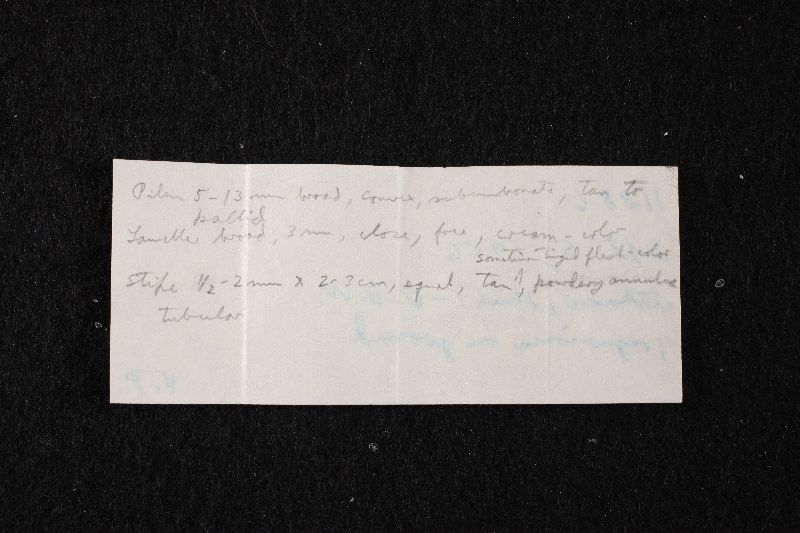 Pileus 5-13 mm broad, convex, subumbonate, tan to
pallid
Lamellae broad, 3 mm, close, free, cream-color
sometimes tinged flesh-color
Stipe 1/2-2 mm x 2-3 cm, equal, tan, powdery annulus
tubular